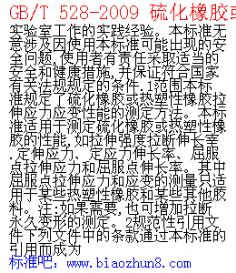 GB/T 528-2009 硫化橡胶或
实验室工作的实践经验。本标准无
意涉及因使用本标准可能出现的安
全问题,使用者有责任采取适当的
安全和健康措施,并保证符合国家
有关法规规定的条件.1范围本标
准规定了硫化橡胶或热塑性橡胶拉
伸应力应变性能的测定方法。本标
准适用于测定硫化橡胶或热塑性橡
胶的性能,如拉伸强度拉断伸长率
.定伸应力、定应力伸长率、屈服
点拉伸应力和屈服点伸长率。其中
屈服点拉伸应力和应变的测量只适
用于某些热塑性橡胶和某些其他胶
料。注:如果需要,也可增加拉断
永久变形的测定。2规范性引用文
件下列文件中的条款通过本标准的
引用而成为
标准吧:www.biaozhun8.com